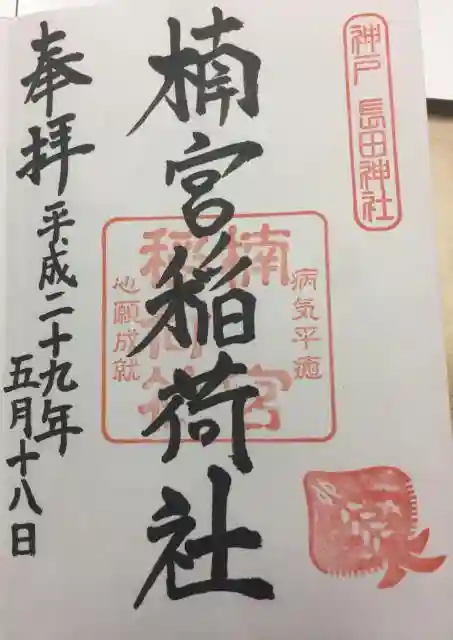 神戸 長田神社
楠宮稲荷社
病気平癒
楠宮
稲荷社
心願成就
奉拝
平成二十九年
五月十八日